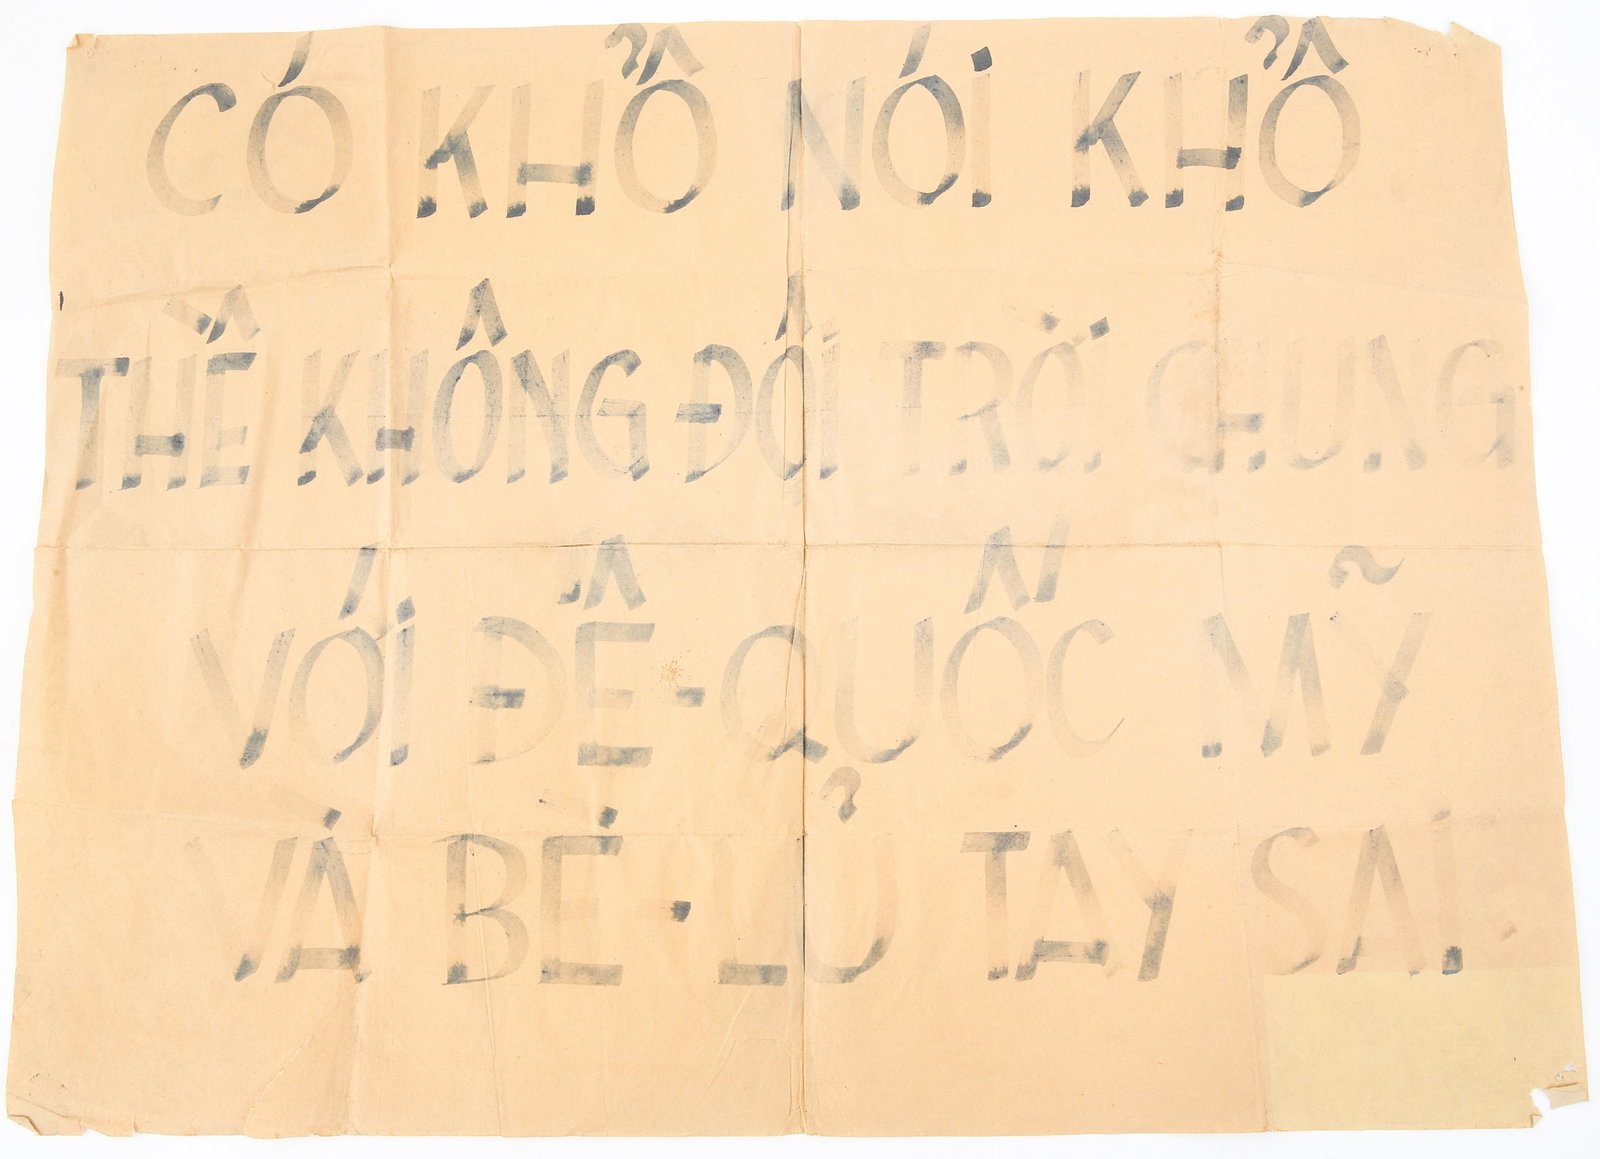 CÓ KHỔ NÓI KHỔ
THỀ KHÔNG ĐỘI TRỜI CHUNG
VỚI ĐẾ-QUỐC MỸ
VÀ BÈ-LŨ TAY SAI.